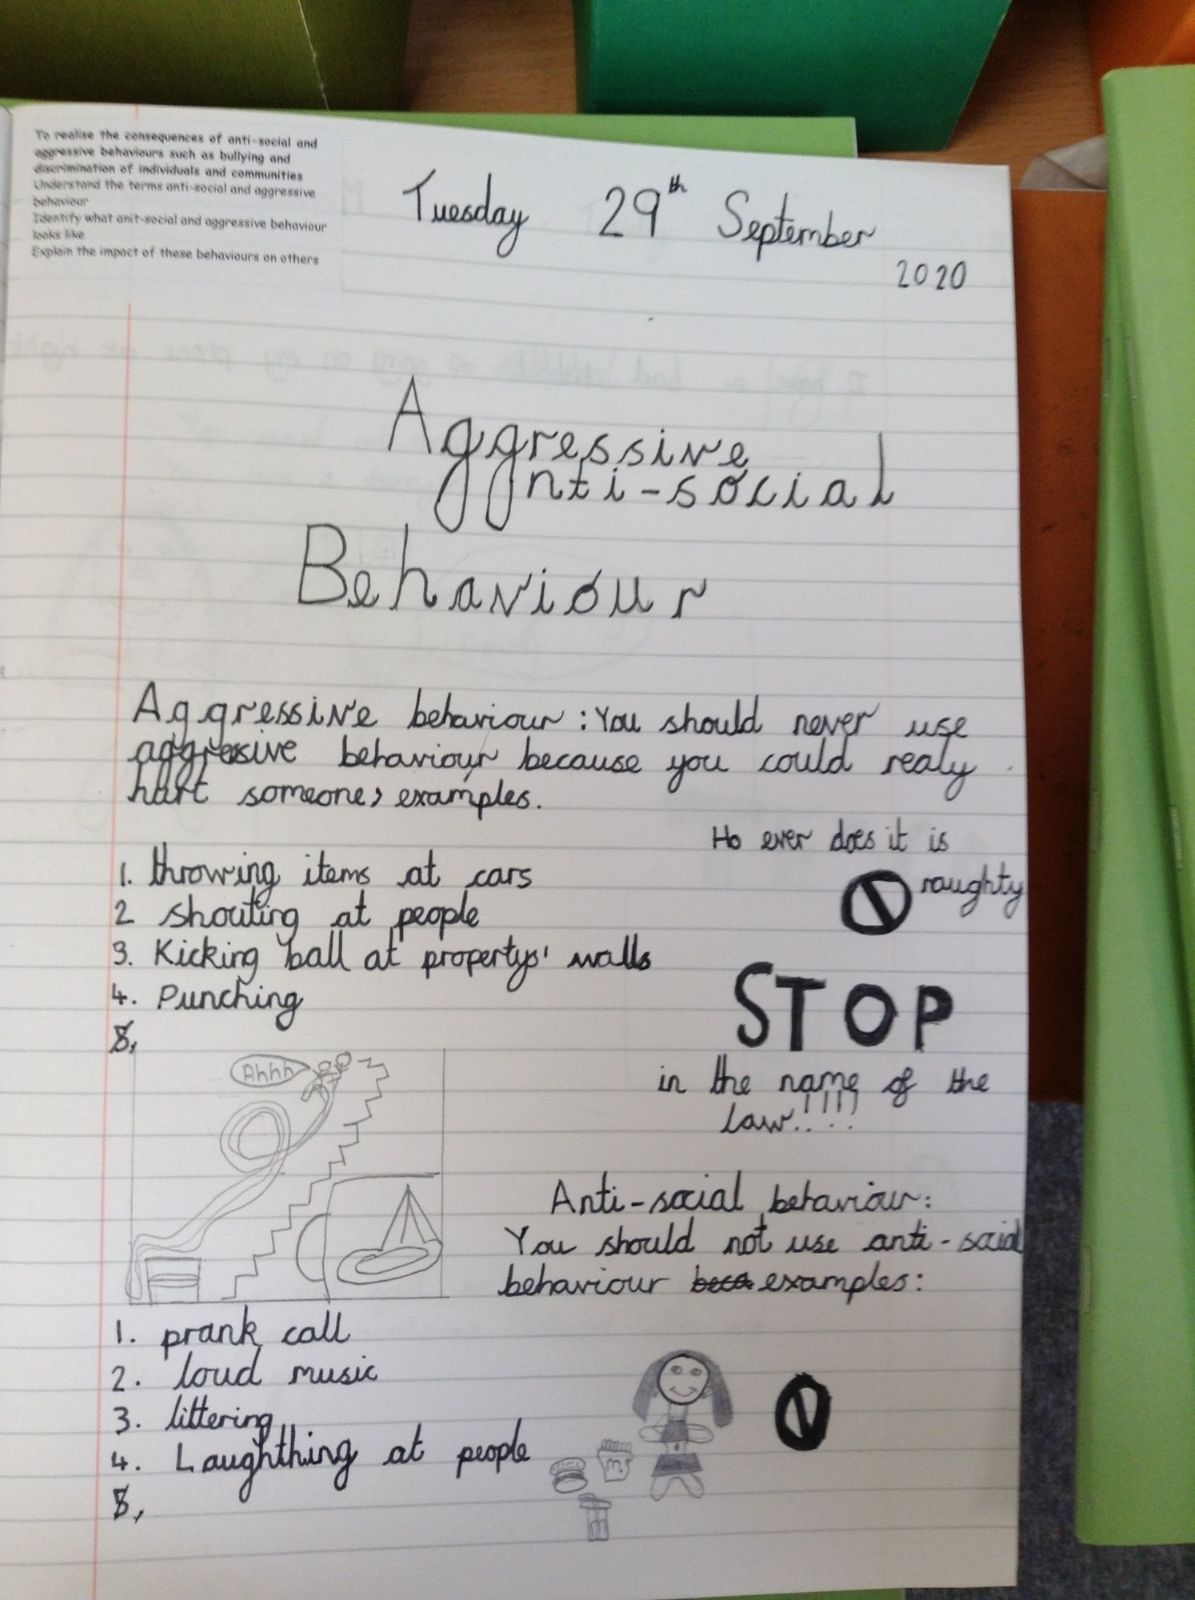 To realise the consequences of anti-social and
aggressive behaviours such as bullying and
discrimination of individuals and communities
Understand the terms anti-social and aggressive
behaviour
Identify what anit-social and aggressive behaviour
looks like
Explain the impact of these behaviours on others
Tuesday 29th September
2020
Aggressive
nti-social
Behaviour
Aggressive behaviour : You should never use
aggresive behaviour because you could realy
hurt someone, examples.
Ho ever does it is
naughty
1. throwing items at cars
2 shouting at people
3. Kicking ball at propertys' walls
4. Punching
5,
STOP
in the name of the
law!!!!
Ahhh
Anti-social behaviour:
You should not use anti-social
behaviour examples:
1. prank call
2. loud music
3. littering
4. Laughthing at people
5,
m